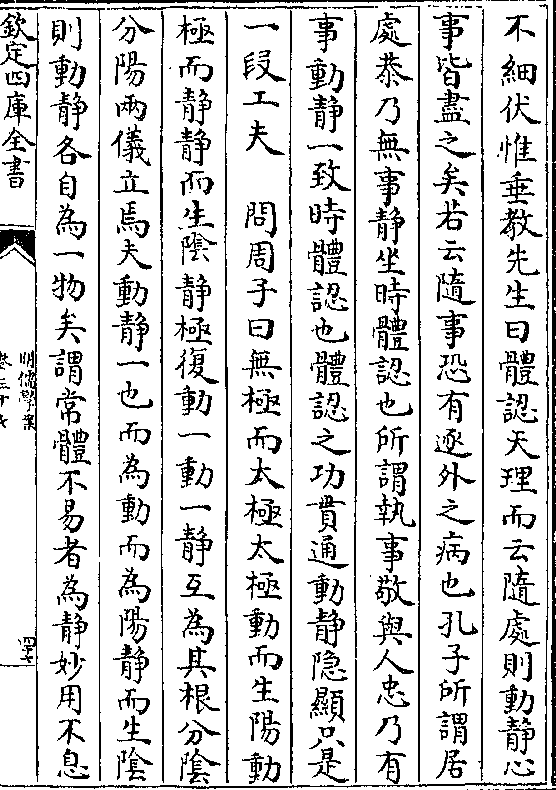 不細伏惟垂教先生曰體認天理而云隨處則動靜心
事皆盡之矣若云隨事恐有逐外之病也孔子所謂居
處恭乃無事靜坐時體認也所謂執事敬與人忠乃有
事動靜一致時體認也體認之功貫通動靜隐顯只是
一段工夫　問周子曰無極而太極太極動而生陽動
極而靜靜而生陰靜極復動一動一靜互為其根分陰
分陽兩儀立焉夫動靜一也而為動而為陽靜而生陰
則動靜各自為一物矣謂常體不易者為靜妙用不息
欽定四庫全書
明儒學案
卷三十七